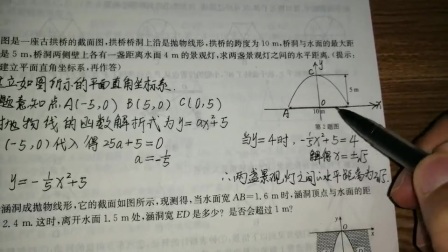 图是一座古拱桥的截面图,拱桥桥洞上沿是抛物线形,拱桥的跨度为10 m,桥洞与水面的最大距
是5 m,桥洞两侧壁上各有一盏距离水面4 m的景观灯,求两盏景观灯之间的水平距离.(提示:
建立平面直角坐标系,再作答)
建立如图所示的平面直角坐标系.
题意知点:A(-5,0) B(5,0) C(0,5)
抛物线的函数解析式为y=ax²+5
(-5,0)代入得 25a+5=0
a=-1/5
y=-1/5x²+5
y
C
5 m
A
O
x
10 m
第2题图
当y=4时,-1/5x²+5=4
解得x=±√5
∴两盏景观灯之间水平距离为2√5.
涵洞成抛物线形,它的截面如图所示,现测得,当水面宽AB=1.6 m时,涵洞顶点与水面的距
2.4 m.这时,离开水面1.5 m处,涵洞宽ED是多少?是否会超过1 m?
y